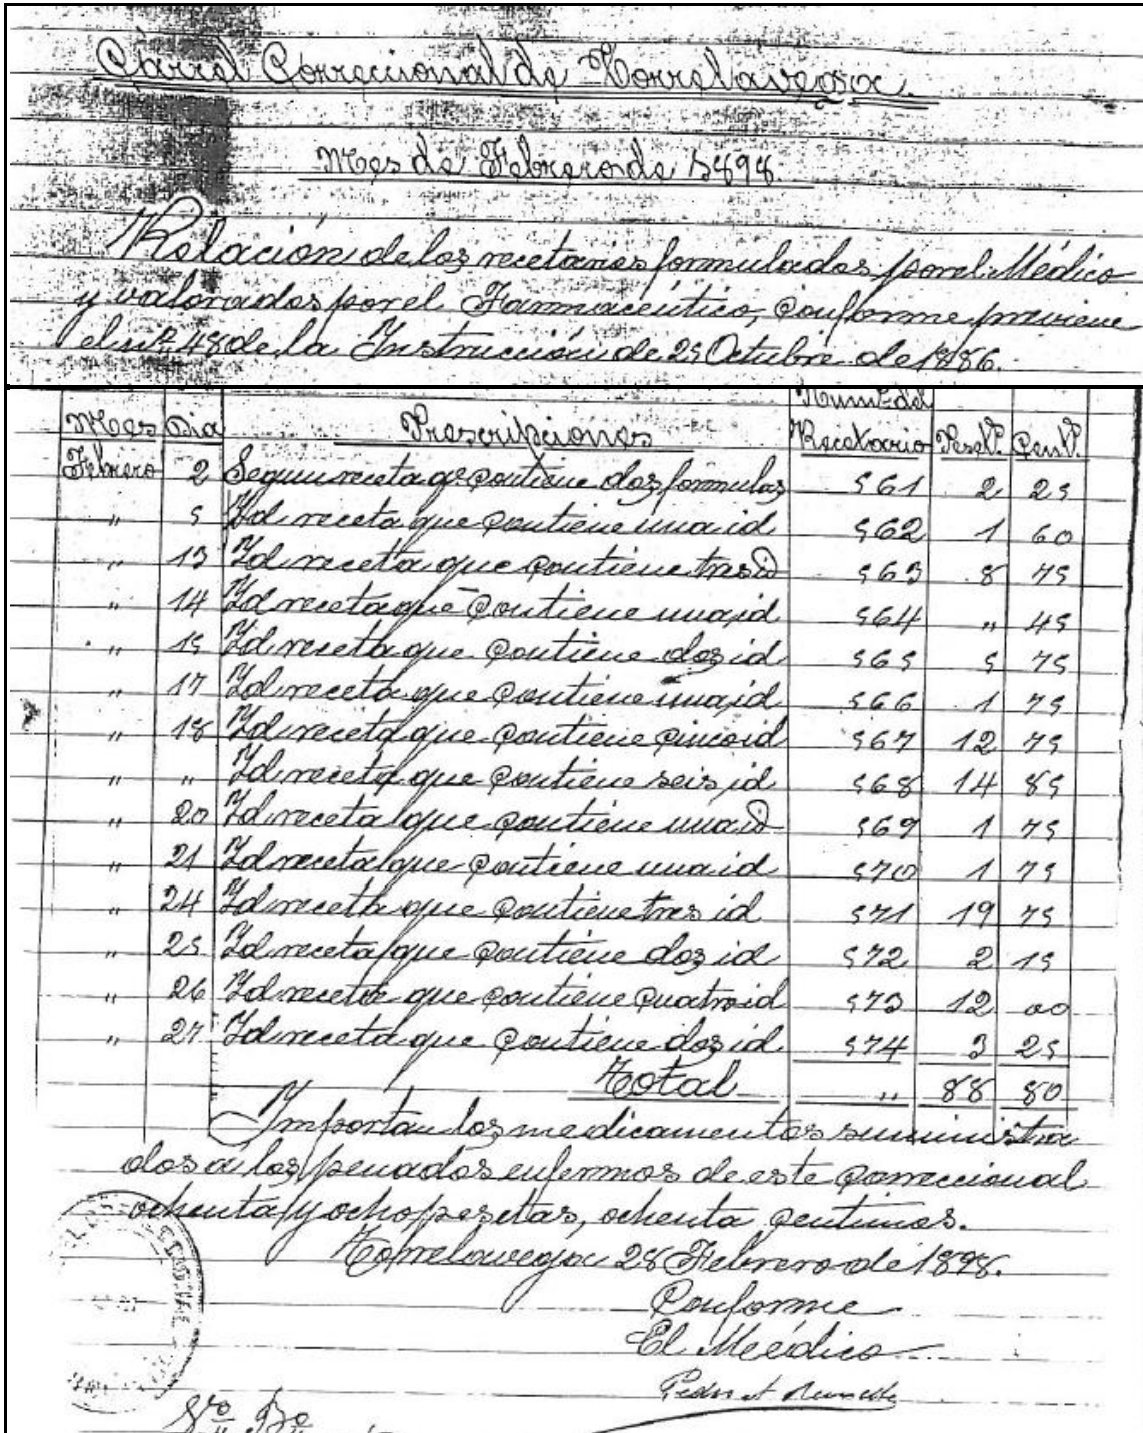 Cárcel Correccional de Torrelavega.
Mes de Febrero de 1898.
Relación de los recetarios formulados por el Médico
y valorados por el Farmacéutico, conforme previene
el nº 48 de la Instrucción de 25 Octubre de 1886.
Mes Dia Prescripciones Num.º del Recetario Peset.s Cent.s
Febrero 2 Segun receta qe contiene dos fórmulas 561 2 25
" 5 Id receta que contiene una id 562 1 60
" 13 Id receta que contiene tres id 563 8 75
" 14 Id receta que contiene una id 564 " 45
" 15 Id receta que contiene dos id 565 5 75
" 17 Id receta que contiene una id 566 1 75
" 18 Id receta que contiene cinco id 567 12 75
" " Id receta que contiene seis id 568 14 85
" 20 Id receta que contiene una id 569 1 75
" 21 Id receta que contiene una id 570 1 75
" 24 Id receta que contiene tres id 571 19 75
" 25 Id receta que contiene dos id 572 2 15
" 26 Id receta que contiene cuatro id 573 12 00
" 27 Id receta que contiene dos id 574 3 25
Total " 88 80
Importan los medicamentos suministra
dos a los penados enfermos de este correccional
ochenta y ocho pesetas, ochenta centimos.
Torrelavega 28 Febrero de 1898.
Conforme
El Médico
Vº Bº